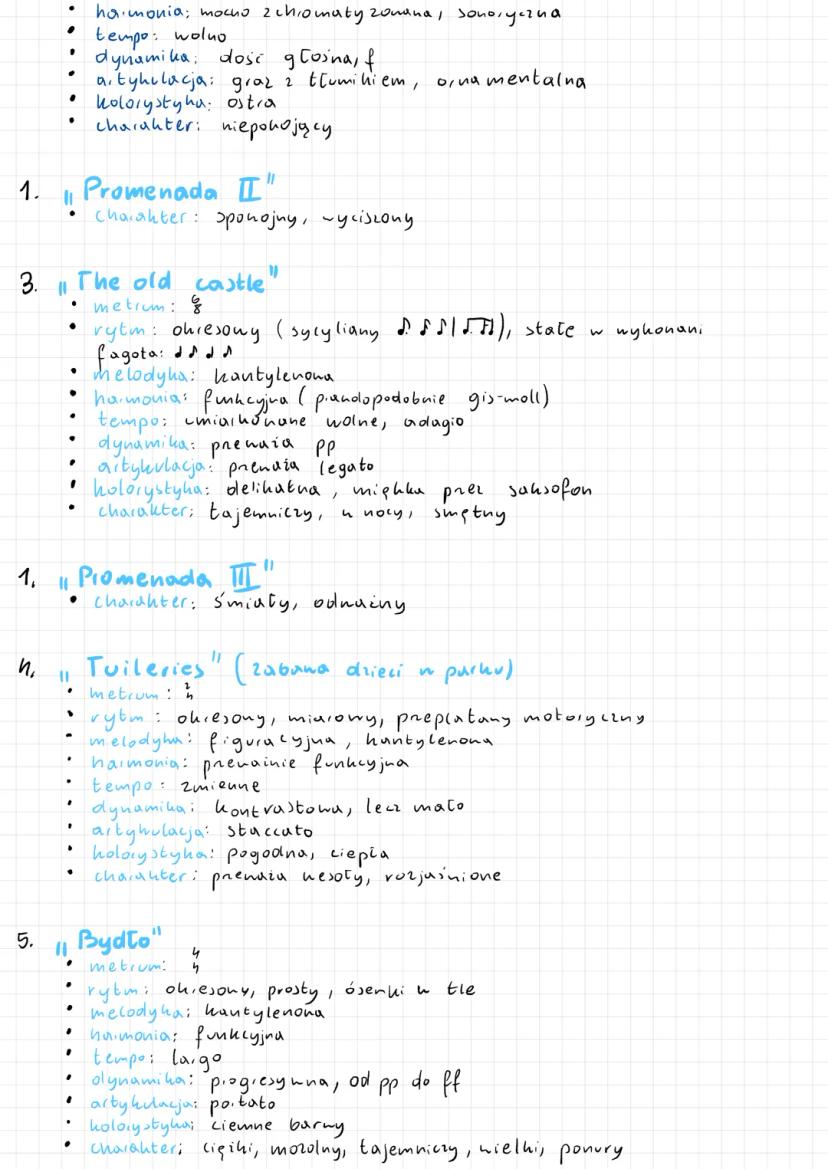 • harmonia: mocno zchromatyzowana, sonoryczna
• tempo: wolno
• dynamika: dość głośna, f
• artykulacja: graz z tłumikiem, ornamentalna
• kolorystyka: ostra
• charakter: niepokojący
1. „Promenada II"
• charakter: spokojny, wyciszony
3. „The old castle"
• metrum: 6/8
• rytm: okresowy (sycyliany ♪. ♪ ♪ | ♫), stałe w wykonani
fagota: ♩ ♪ ♩ ♪
• melodyka: kantylenowa
• harmonia: funkcyjna (prawdopodobnie gis-moll)
• tempo: umiarkowane wolne, adagio
• dynamika: przeważa pp
• artykulacja: przeważa legato
• kolorystyka: delikatna, miękka przez saksofon
• charakter: tajemniczy, w nocy, smętny
1. „Promenada III"
• charakter: śmiały, odważny
4. „Tuileries" (zabawa dzieci w parku)
• metrum: 2/4
• rytm: okresowy, miarowy, przeplatany motoryczny
• melodyka: figuracyjna, kantylenowa
• harmonia: przeważnie funkcyjna
• tempo: zmienne
• dynamika: kontrastowa, lecz mało
• artykulacja: staccato
• kolorystyka: pogodna, ciepła
• charakter: przeważa wesoły, rozjaśnione
5. „Bydło"
• metrum: 4/4
• rytm: okresowy, prosty, ósemki w tle
• melodyka: kantylenowa
• harmonia: funkcyjna
• tempo: largo
• dynamika: progresywna, od pp do ff
• artykulacja: portato
• kolorystyka: ciemne barwy
• charakter: ciężki, mozolny, tajemniczy, wielki, ponury